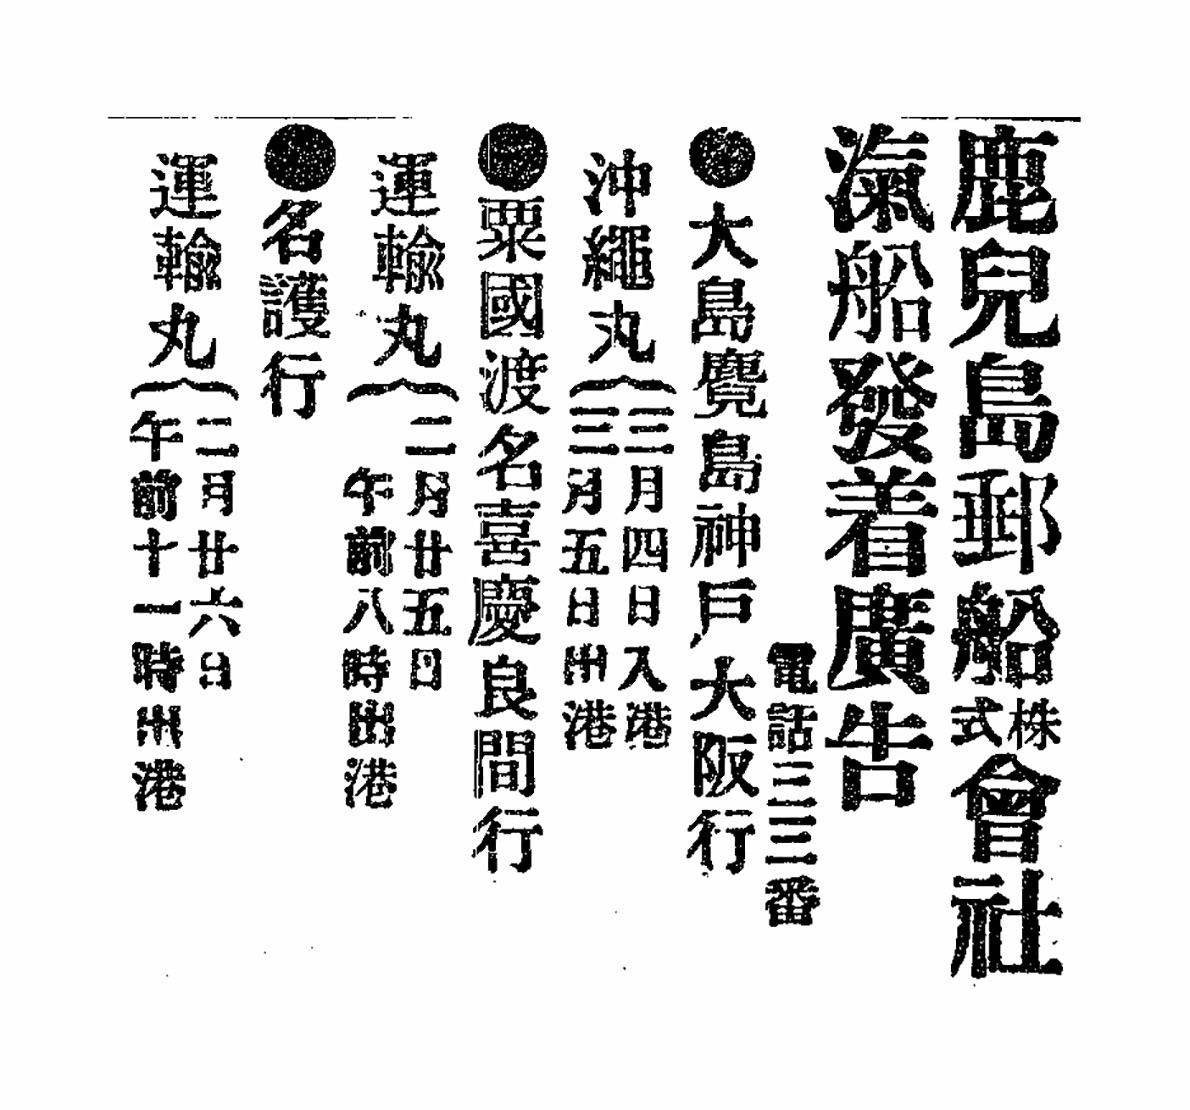 鹿兒島郵船株式會社
滊船發着廣告
電話三三番
●大島麑島神戸大阪行
沖繩丸
三月四日入港
三月五日出港
●粟國渡名喜慶良間行
運輸丸
二月廿五日
午前八時出港
●名護行
運輸丸
二月廿六日
午前十一時出港